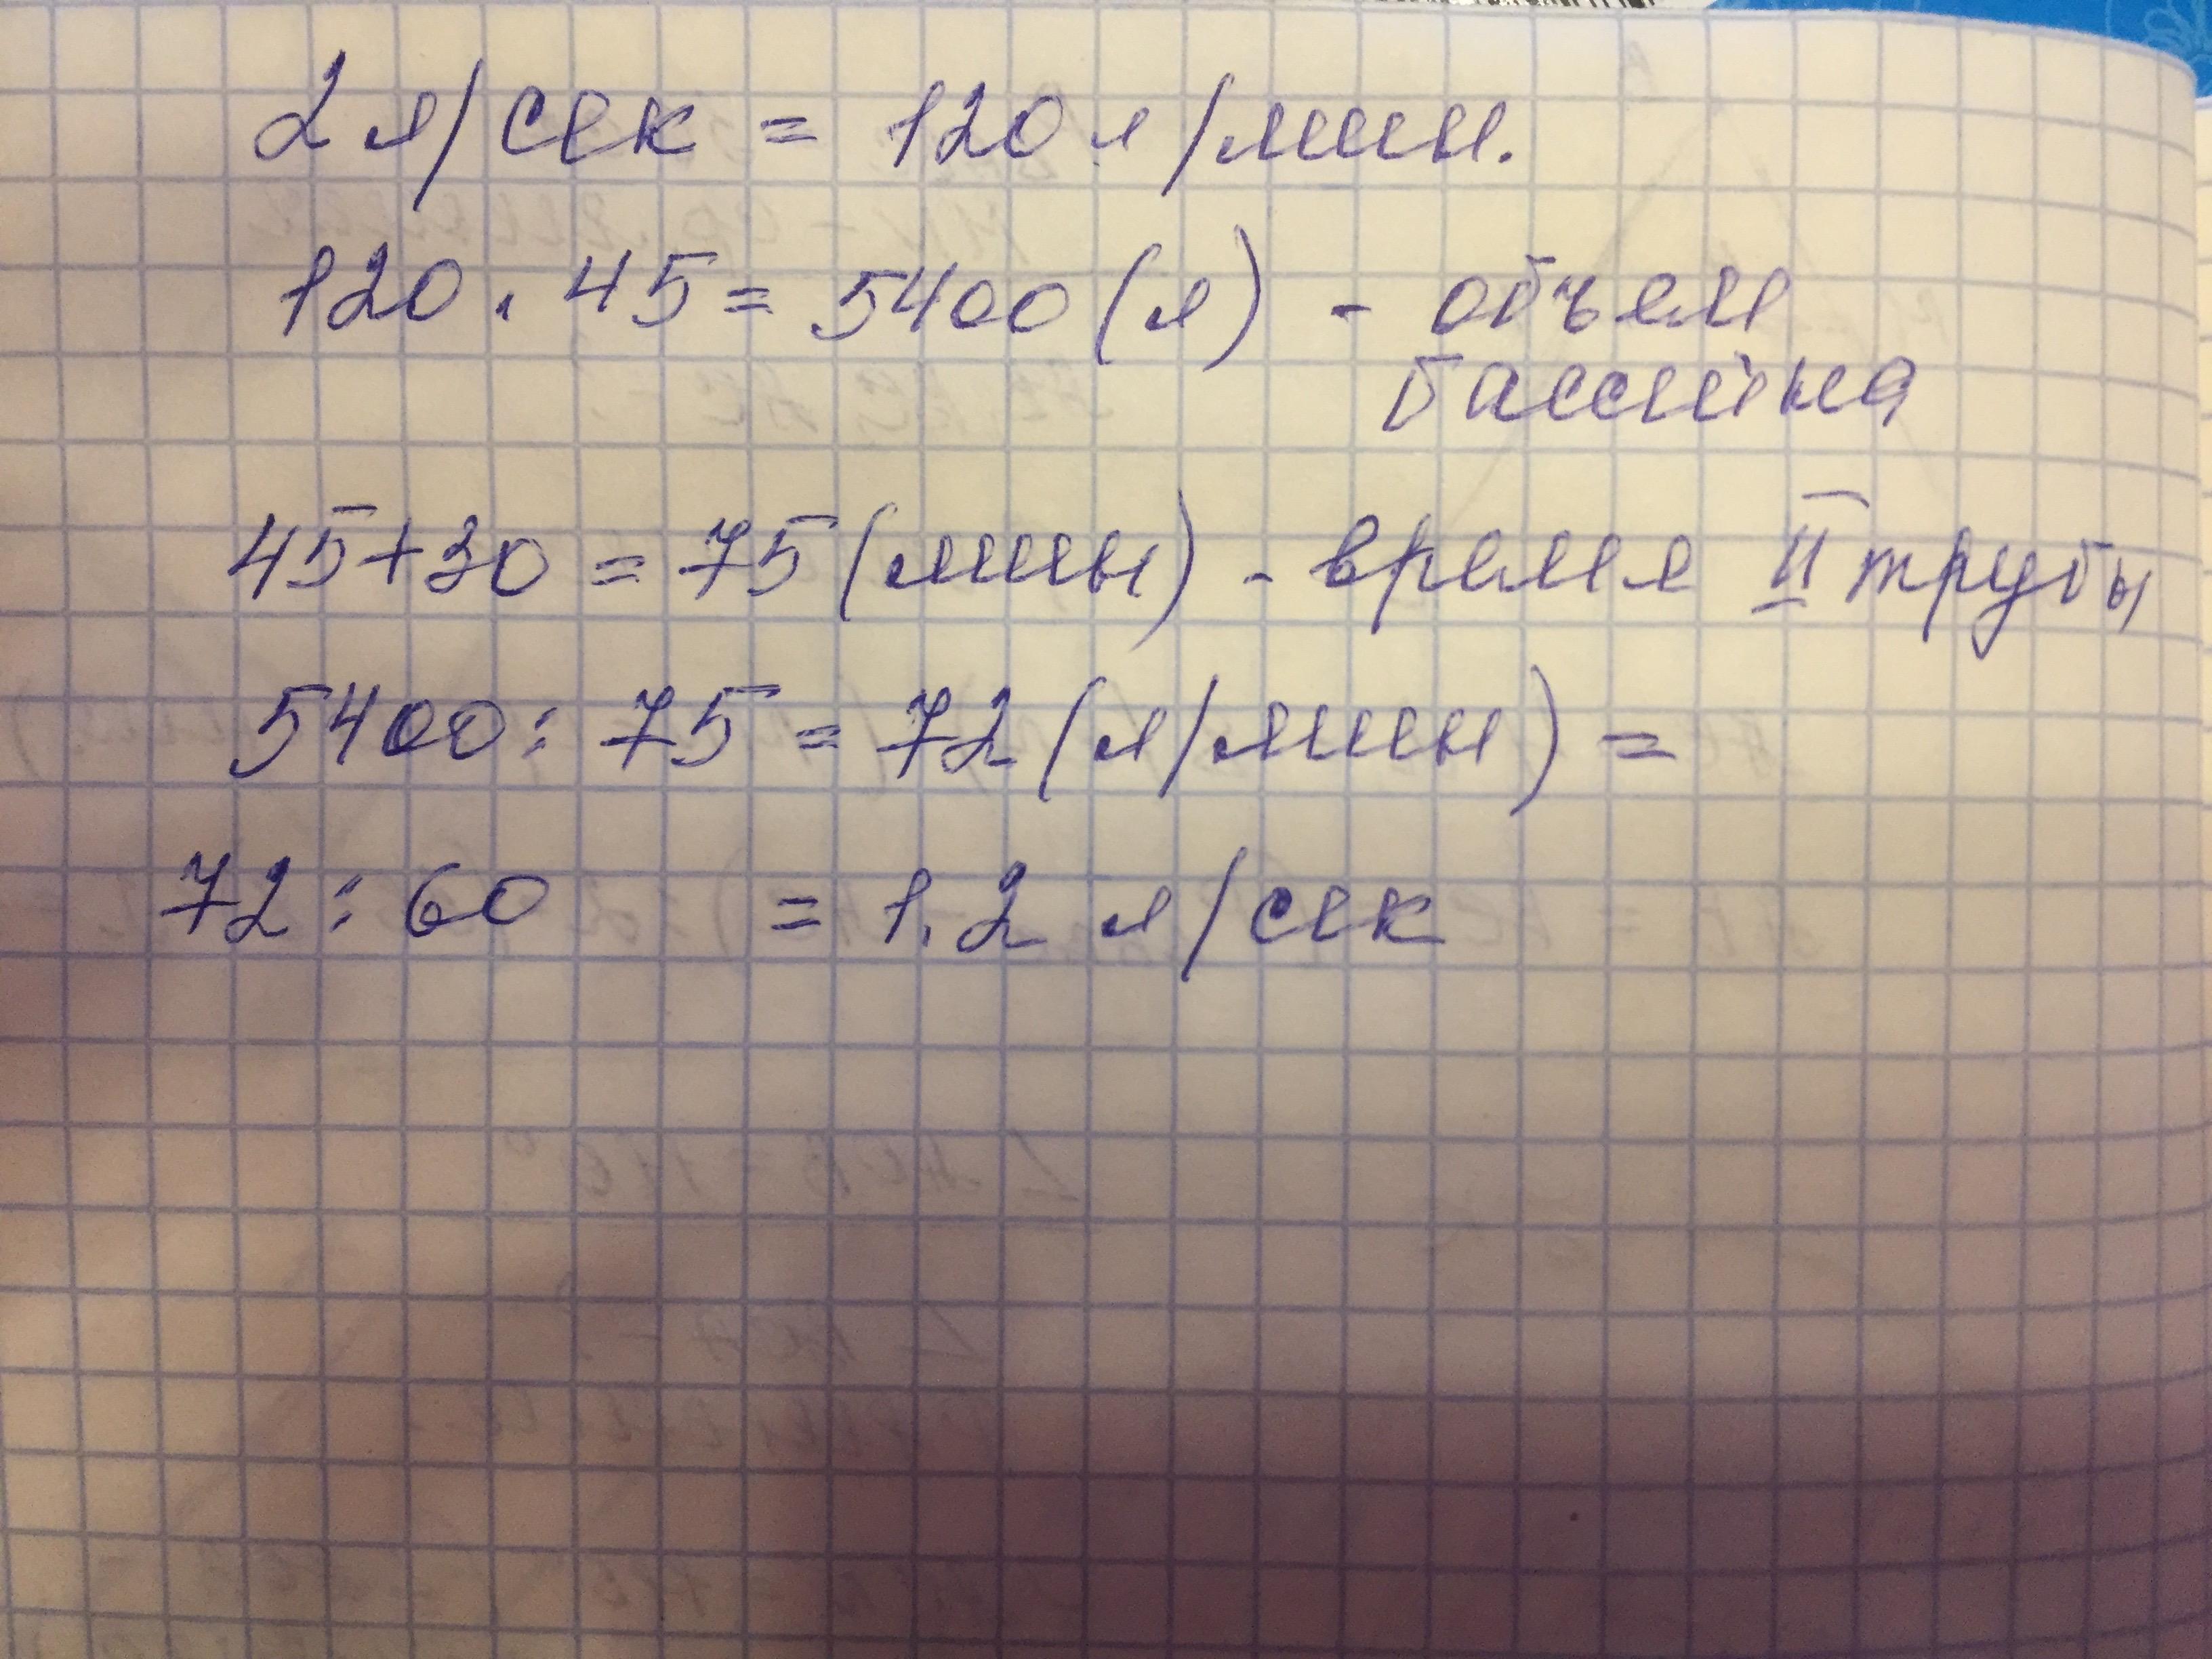 2 л/сек = 120 л/мин.
120 · 45 = 5400 (л) - объем
бассейна
45+30 = 75 (мин) - время II трубы
5400 : 75 = 72 (л/мин) =
72 : 60 = 1,2 л/сек